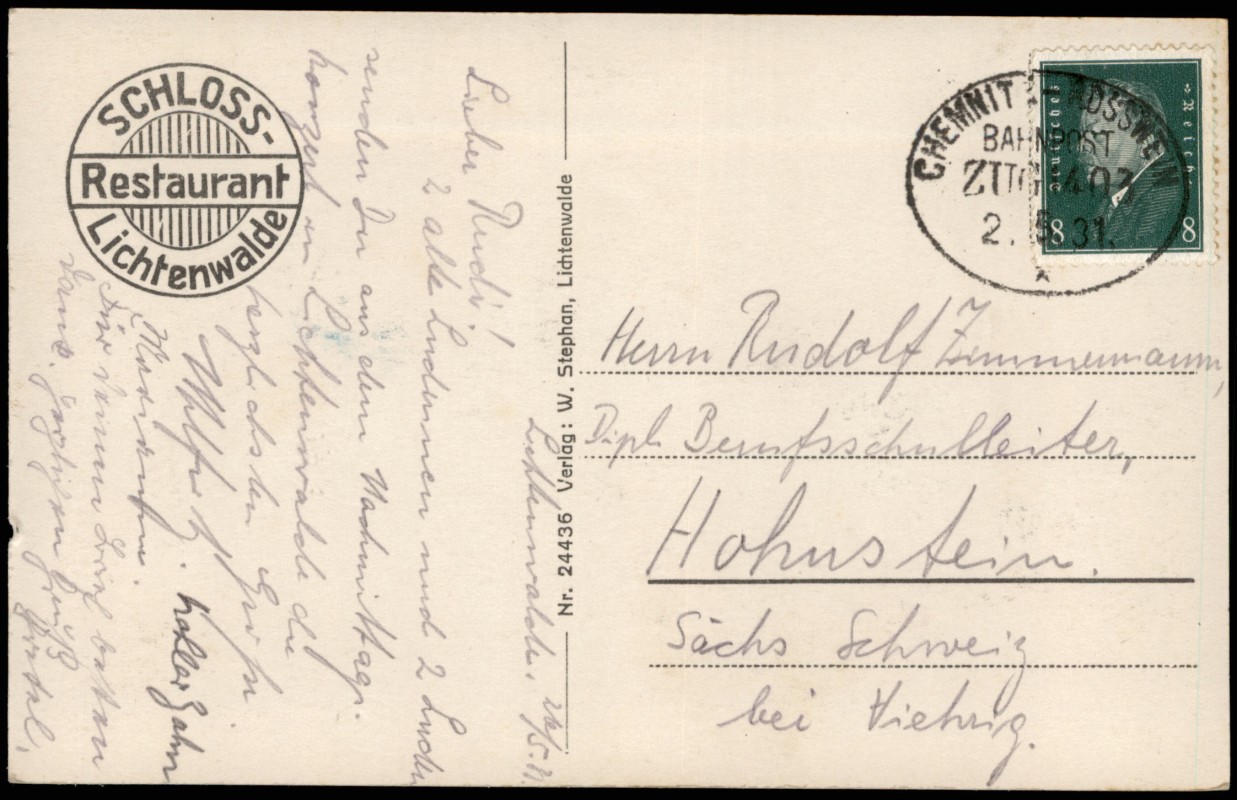 SCHLOSS-
Restaurant
Lichtenwalde
Lichtenwalde, 2/5.31.
Lieber Rudi!
2 alte Ludinnen und 2 Luden
senden Dir aus dem Nachmittags-
konzert in Lichtenwalde die
herzlichsten Grüße
Für Deinen Brief besten
Dank. Herzlichen Gruß
Nr. 24436 Verlag: W. Stephan, Lichtenwalde
CHEMNITZ-ROSSWEIN
BAHNPOST
ZUG 407
2. 5. 31.
Deutsches Reich
8 8
Herrn Rudolf Zimmermann,
Dipl. Berufsschulleiter,
Hohnstein.
Sächs Schweiz
bei Viehrig.